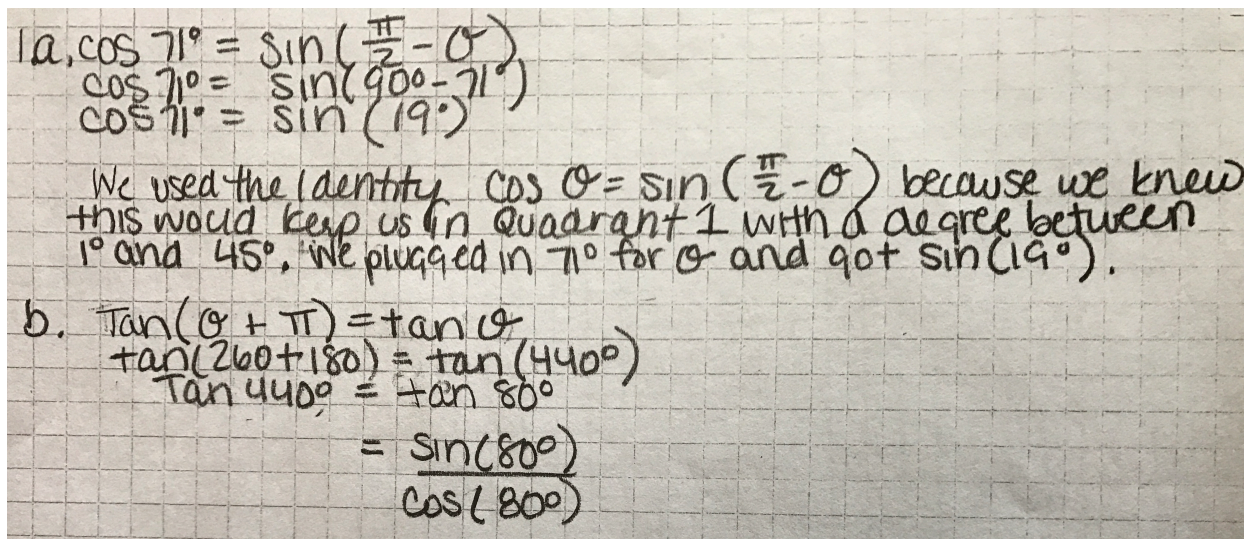 1a. cos 71° = sin(π/2 - θ)
cos 71° = sin(90° - 71°)
cos 71° = sin (19°)
We used the Identity cos θ = sin (π/2 - θ) because we knew
this would keep us in Quadrant 1 with a degree between
1° and 45°. We plugged in 71° for θ and got sin(19°).
b. Tan(θ + π) = tan θ
tan(260+180) = tan(440°)
Tan 440° = tan 80°
= sin(80°)
cos(80°)